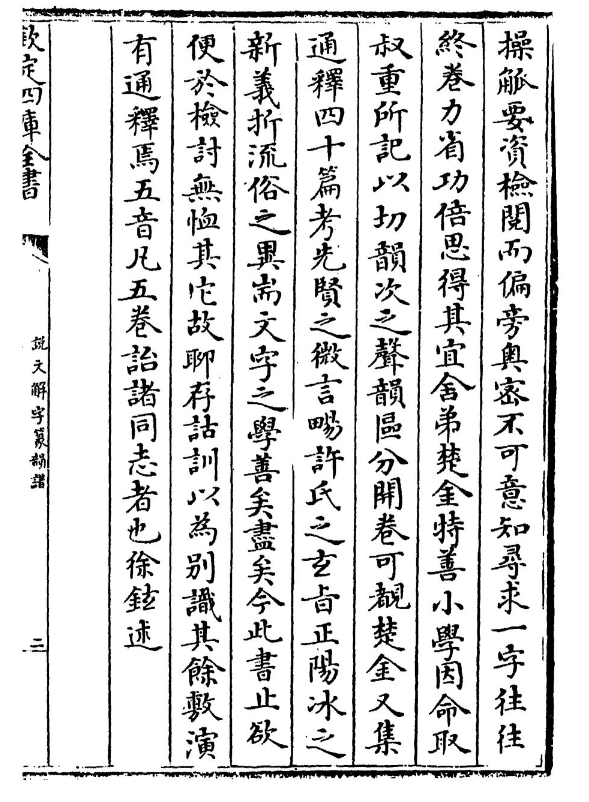 操觚要資檢閱而偏旁奥宻不可意知尋求一字往往
終卷力省功倍思得其宜舍弟楚金特善小學因命取
叔重所記以切韻次之聲韻區分開卷可覩楚金又集
通釋四十篇考先賢之微言暢許氏之玄旨正陽冰之
新義折流俗之異耑文字之學善矣盡矣今此書止欲
便於檢討無恤其它故聊存詁訓以為别識其餘敷演
有通釋焉五音凡五卷詒諸同志者也徐鉉述
欽定四庫全書
説文解字篆韻譜
二